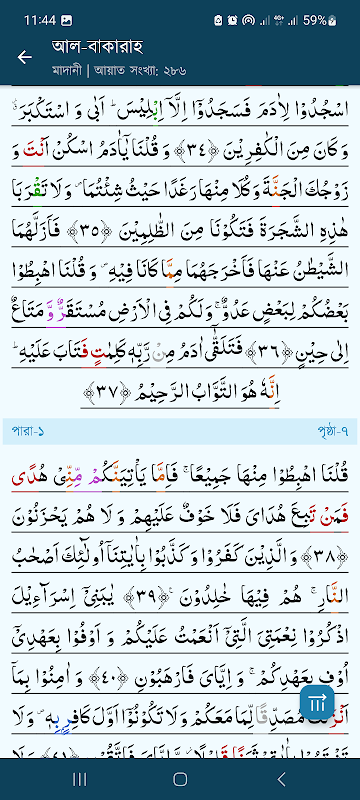 11:44
59%
আল-বাকারাহ
মাদানী | আয়াত সংখ্যা: ২৮৬
اسْجُدُوْا لِاٰدَمَ فَسَجَدُوْٓا اِلَّآ اِبْلِيْسَ ؕ اَبٰى وَ اسْتَكْبَرَ ٭ۗ
وَ كَانَ مِنَ الْكٰفِرِيْنَ ﴿٣٤﴾ وَ قُلْنَا يٰٓاٰدَمُ اسْكُنْ اَنْتَ وَ
زَوْجُكَ الْجَنَّةَ وَ كُلَا مِنْهَا رَغَدًا حَيْثُ شِئْتُمَا ۪ وَ لَا تَقْرَبَا
هٰذِهِ الشَّجَرَةَ فَتَكُوْنَا مِنَ الظّٰلِمِيْنَ ﴿٣٥﴾ فَاَزَلَّهُمَا
الشَّيْطٰنُ عَنْهَا فَاَخْرَجَهُمَا مِمَّا كَانَا فِيْهِ ۪ وَ قُلْنَا اهْبِطُوْا
بَعْضُكُمْ لِبَعْضٍ عَدُوٌّ ۚ وَ لَكُمْ فِي الْاَرْضِ مُسْتَقَرٌّ وَّ مَتَاعٌ
اِلٰى حِيْنٍ ﴿٣٦﴾ فَتَلَقّٰٓى اٰدَمُ مِنْ رَّبِّهٖ كَلِمٰتٍ فَتَابَ عَلَيْهِ ؕ
اِنَّهٗ هُوَ التَّوَّابُ الرَّحِيْمُ ﴿٣٧﴾
পারা-১ পৃষ্ঠা-৭
قُلْنَا اهْبِطُوْا مِنْهَا جَمِيْعًا ۚ فَاِمَّا يَاْتِيَنَّكُمْ مِّنِّيْ هُدًى
فَمَنْ تَبِعَ هُدَايَ فَلَا خَوْفٌ عَلَيْهِمْ وَ لَا هُمْ يَحْزَنُوْنَ
﴿٣٨﴾ وَ الَّذِيْنَ كَفَرُوْا وَ كَذَّبُوْا بِاٰيٰتِنَآ اُولٰٓئِكَ اَصْحٰبُ
النَّارِ ۚ هُمْ فِيْهَا خٰلِدُوْنَ ﴿٣٩﴾ يٰبَنِيْٓ اِسْرَآءِيْلَ
اذْكُرُوْا نِعْمَتِيَ الَّتِيْٓ اَنْعَمْتُ عَلَيْكُمْ وَ اَوْفُوْا بِعَهْدِيْٓ
اُوْفِ بِعَهْدِكُمْ ۚ وَ اِيَّايَ فَارْهَبُوْنِ ﴿٤٠﴾ وَ اٰمِنُوْا بِمَآ
اَنْزَلْتُ مُصَدِّقًا لِّمَا مَعَكُمْ وَ لَا تَكُوْنُوْٓا اَوَّلَ كَافِرٍۭ بِهٖ ۪ وَ لَا